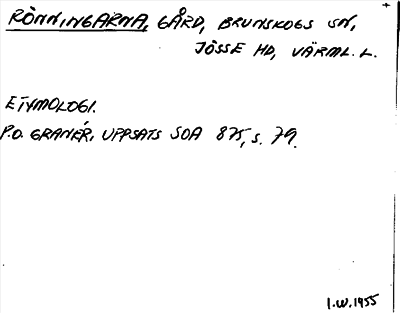 RÖNNINGARNA, GÅRD, BRUNSKOGS SN,
JÖSSE HD, VÄRML. L.
ETYMOLOGI.
P.O. GRANÉR, UPPSATS SOA 875, S. 79.
I.W. 1955